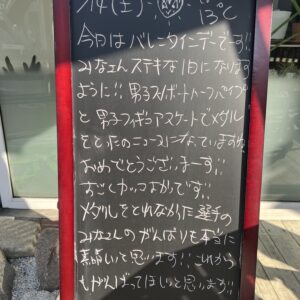 2/14(土)
13℃
今日はバレンタインデーです!!
みなさんステキな1日になります
ように!! 男子スノボートハーフパイプ
と男子フィギュアスケートでメダル
をとったのニュースになっていますね
おめでとうございまーす!!
すごくカッコよかったです!!
メダルをとれなかった選手の
みなさんのがんばりも本当に
素晴しいと思います!! これから
もがんばってほしいと思います!!